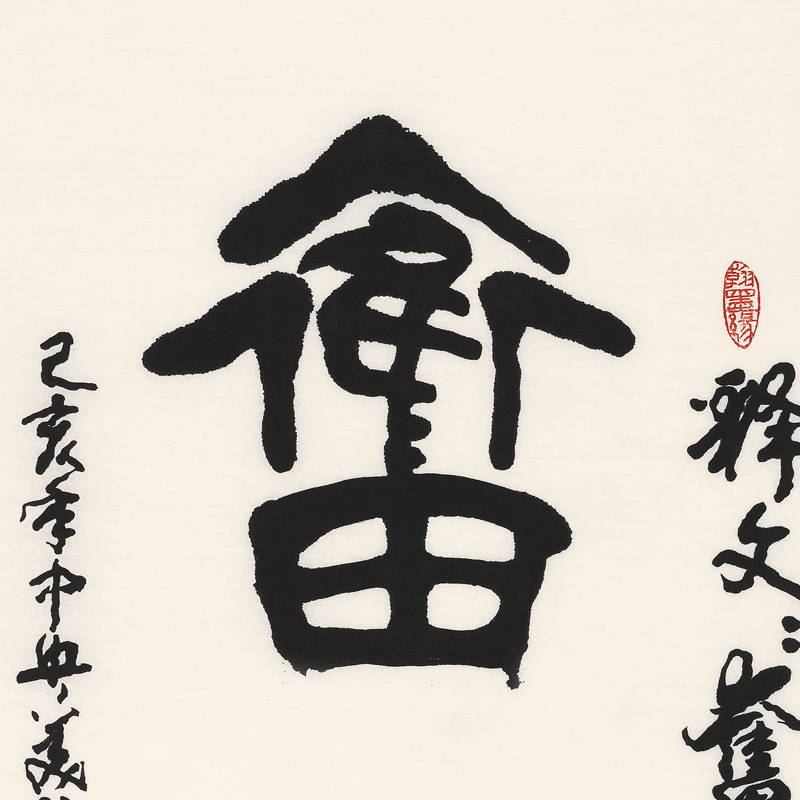 奮
釋文：奮
己亥年中央美